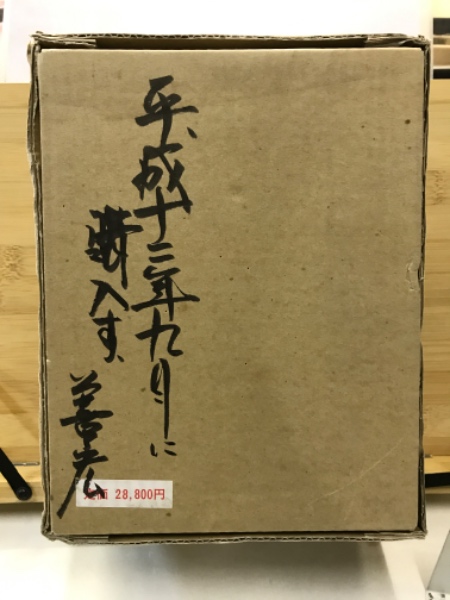 平成十二年九月に
購入す、
善宏
定価 28,800円